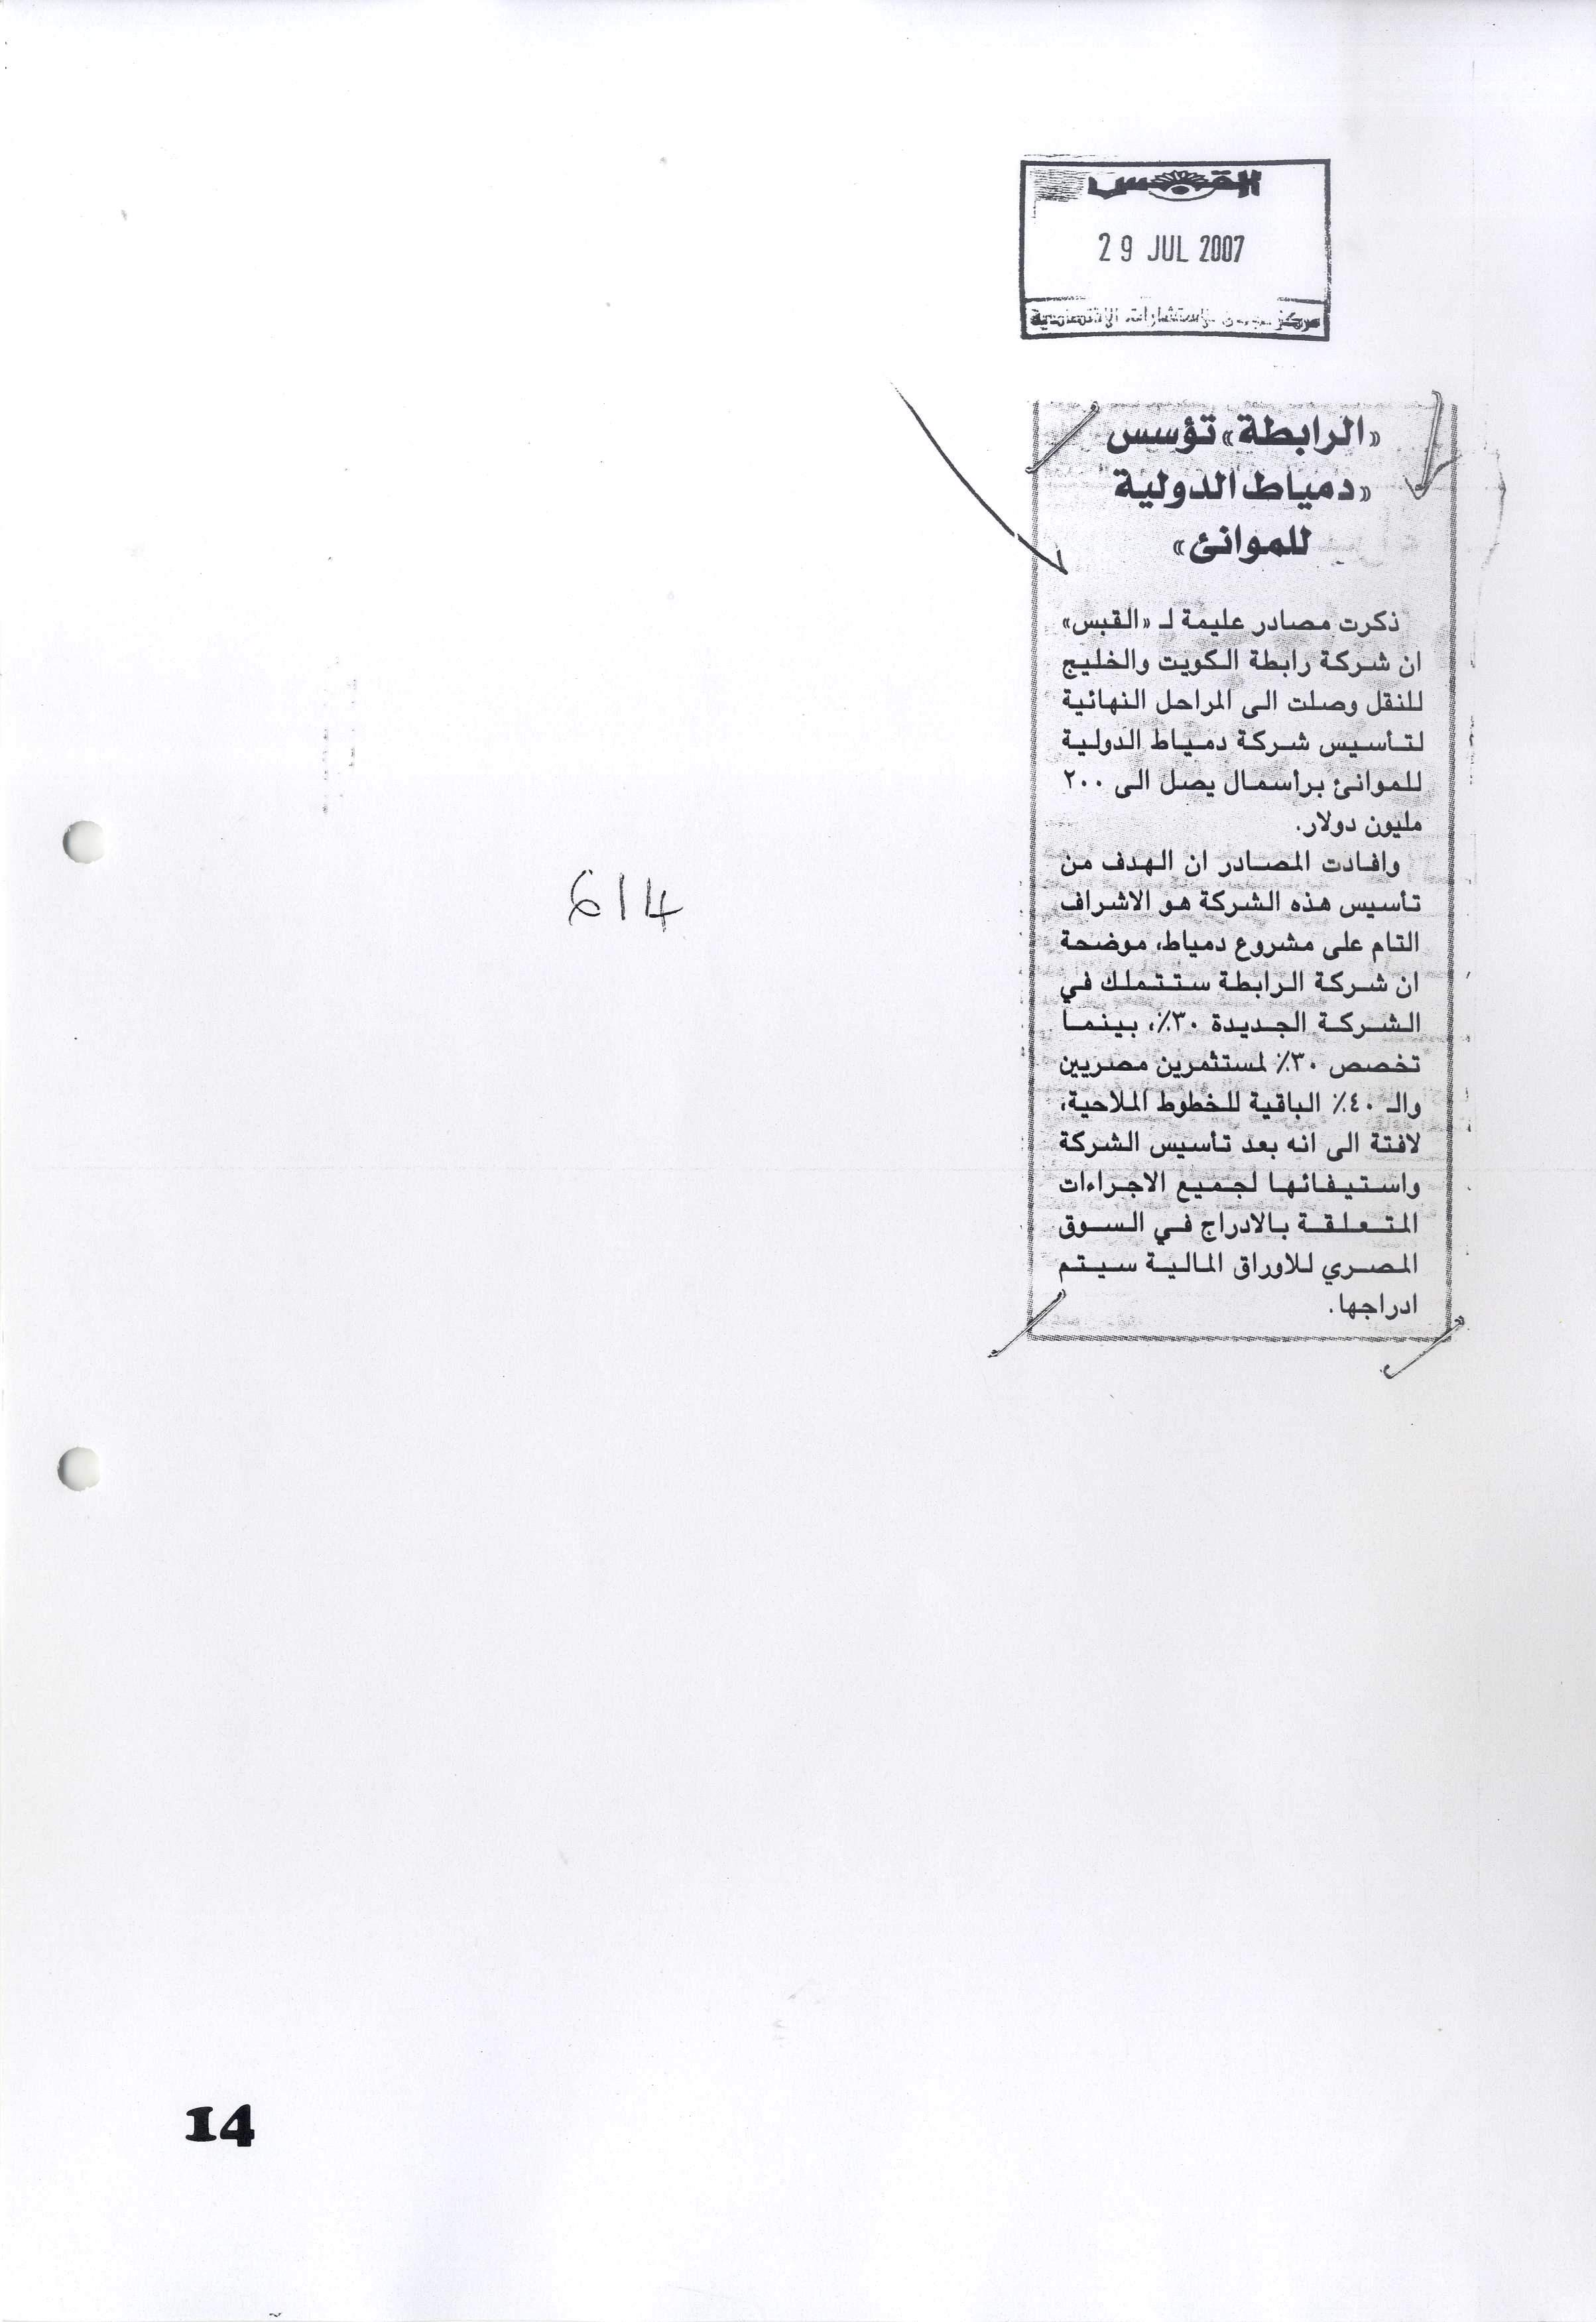 القبس
29 JUL 2007
مركز للاستشارات الاقتصادية
«الرابطة» تؤسس
«دمياط الدولية
للموانئ»
ذكرت مصادر عليمة لـ «القبس»
ان شركة رابطة الكويت والخليج
للنقل وصلت الى المراحل النهائية
لتأسيس شركة دمياط الدولية
للموانئ برأسمال يصل الى ٢٠٠
مليون دولار.
وافادت المصادر ان الهدف من
تأسيس هذه الشركة هو الاشراف
التام على مشروع دمياط، موضحة
ان شركة الرابطة ستتملك في
الشركة الجديدة ٣٠٪، بينما
تخصص ٣٠٪ لمستثمرين مصريين
والـ ٤٠٪ الباقية للخطوط الملاحية،
لافتة الى انه بعد تأسيس الشركة
واستيفائها لجميع الاجراءات
المتعلقة بالادراج في السوق
المصري للاوراق المالية سيتم
ادراجها.
614
14